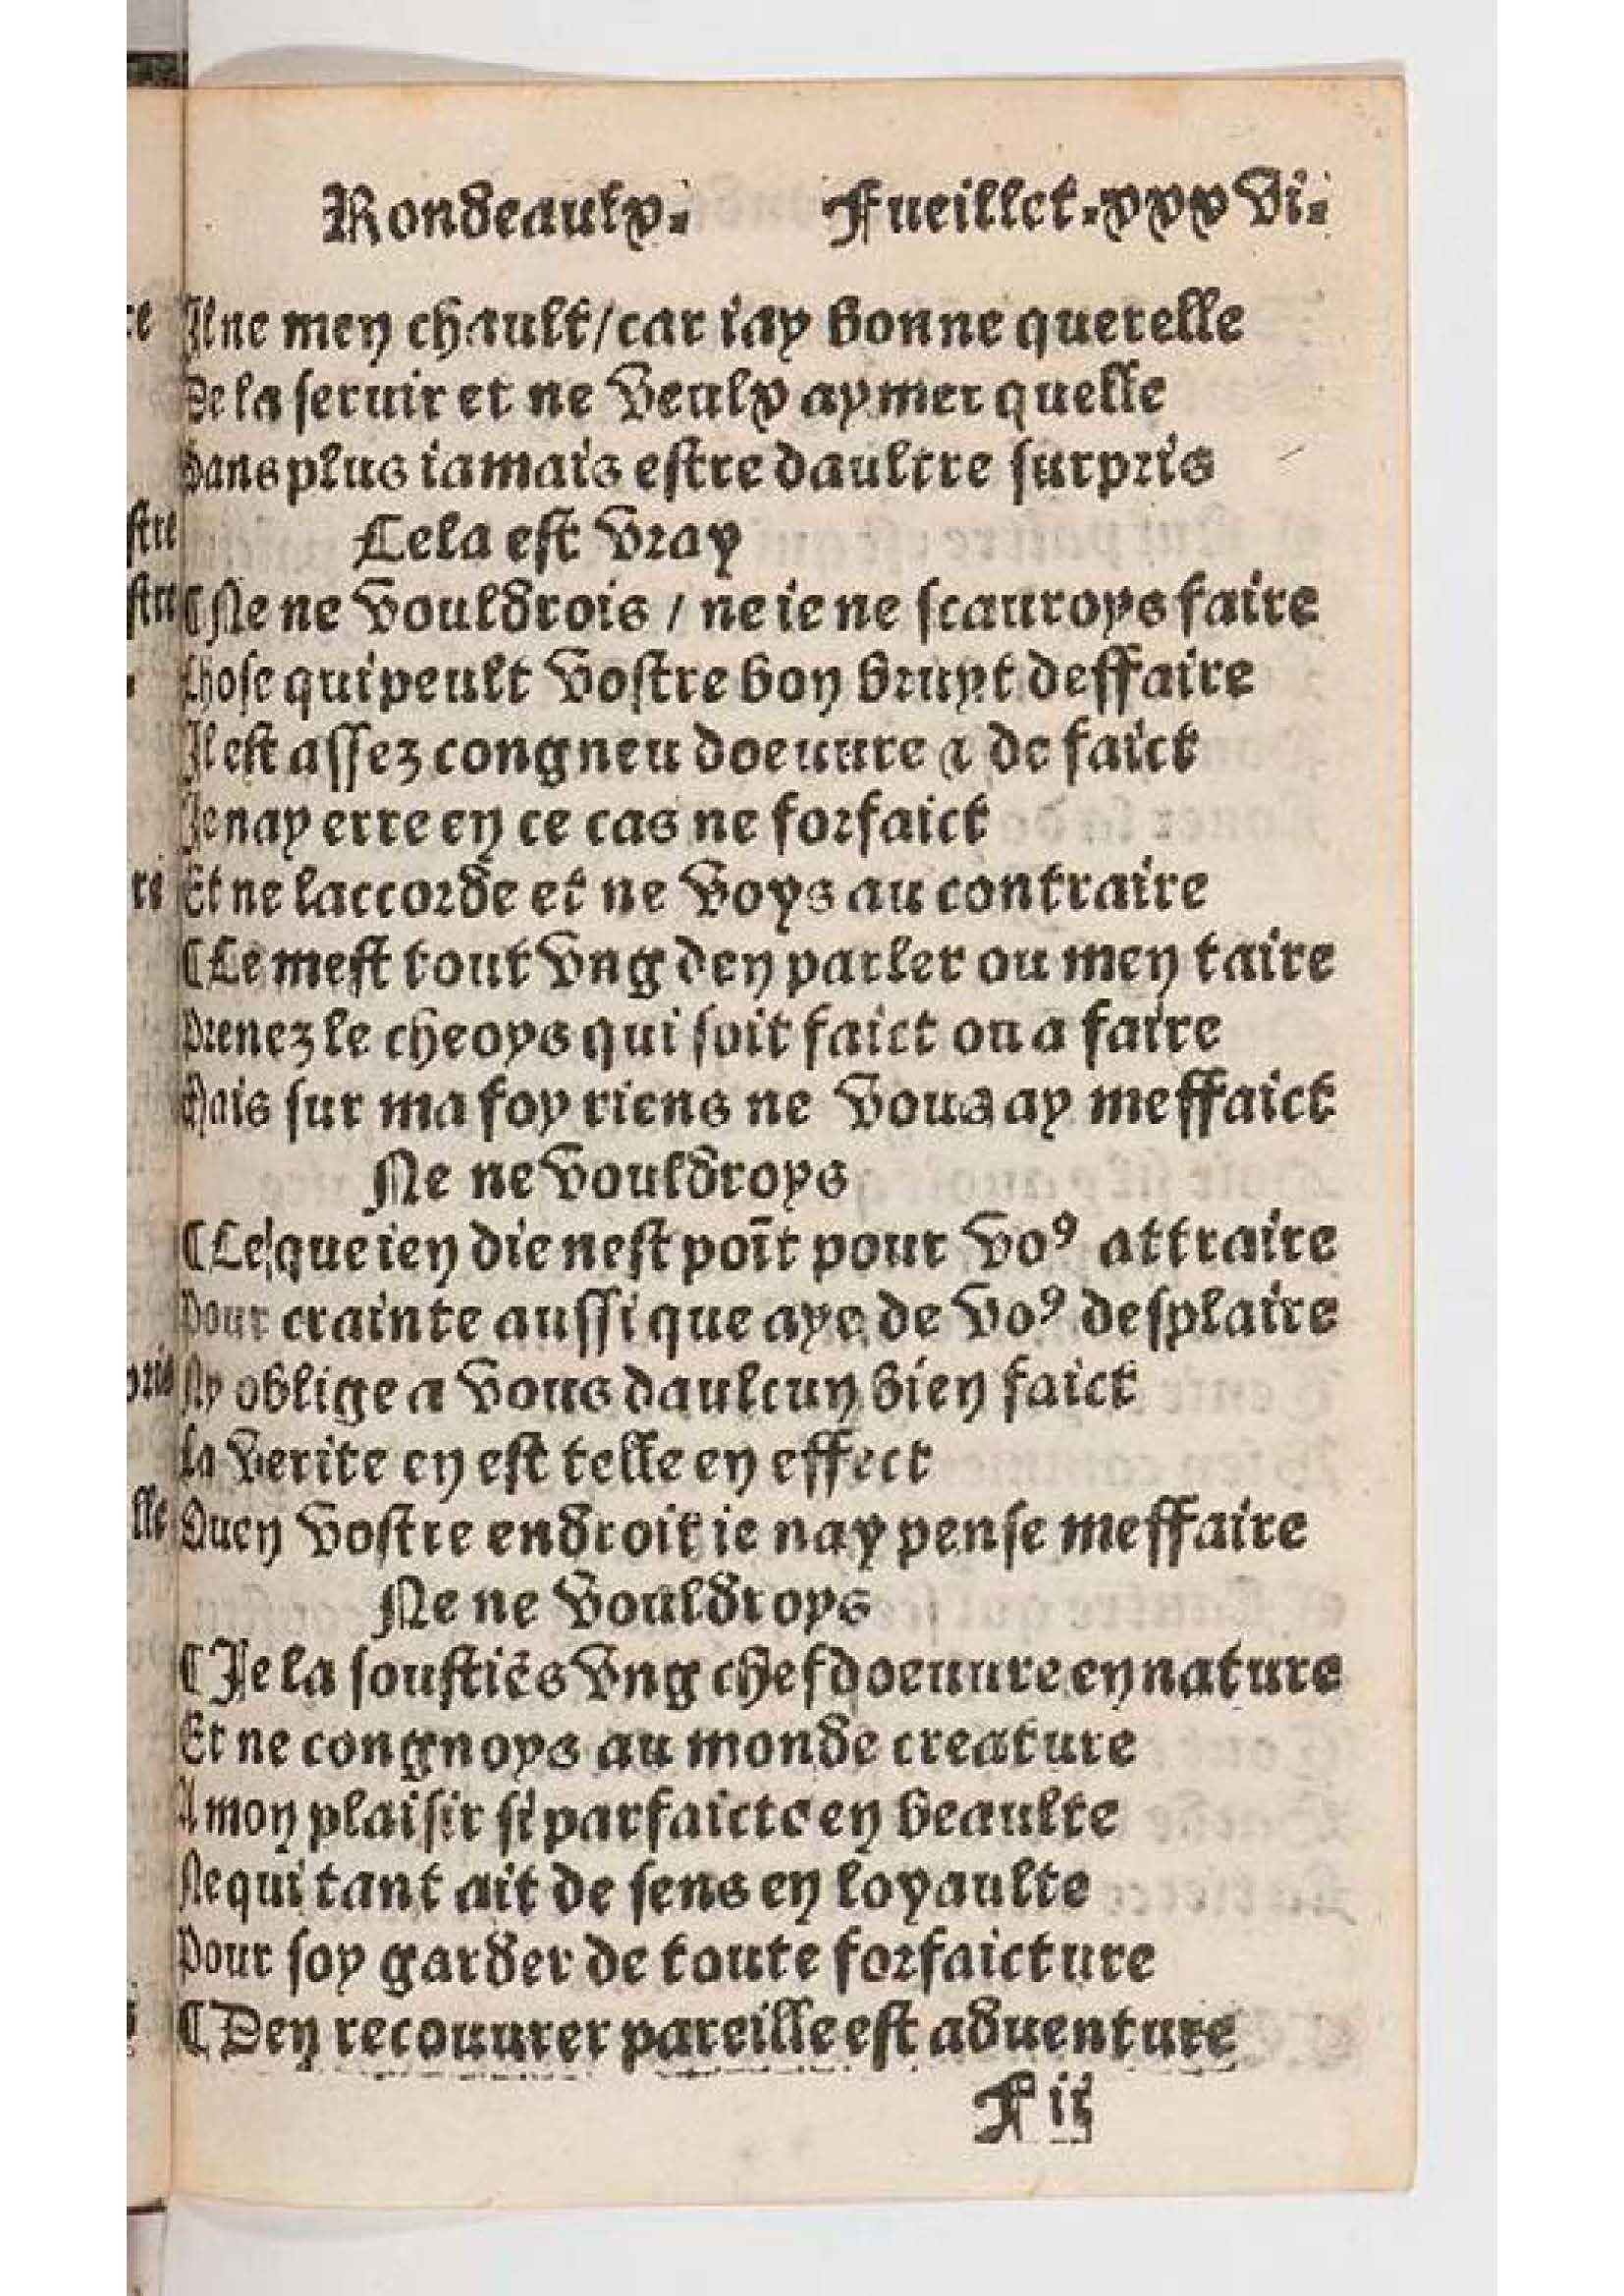 Rondeaulx. Fueillet.xxxvi.
Il ne men chault/car iay bonne querelle
De la seruir et ne veulx aymer quelle
Sans plus iamais estre daultre surpris
Cela est vray
¶ Ne ne vouldrois / ne ie ne scauroys faire
Chose qui peult vostre bon bruyt deffaire
Il est assez congneu doeuure & de faict
Ie nay erre en ce cas ne forfaict
Et ne laccorde et ne voys au contraire
¶ Ce mest tout vng den parler ou men taire
Prenez le cheoys qui soit faict ou a faire
Mais sur ma foy riens ne vous ay meffaict
Ne ne vouldroys
¶ Ce que ien die nest poīt pour voꝰ attraire
Pour crainte aussi que aye de voꝰ desplaire
Ny oblige a vous daulcun bien faict
La verite en est telle en effect
Quen vostre endroit ie nay pense meffaire
Ne ne vouldroys
¶ Ie la soustiēs vng chef doeuure en nature
Et ne congnoys au monde creature
A mon plaisir si parfaicte en beaulte
Ne qui tant ait de sens en loyaulte
Pour soy garder de toute forfaicture
¶ Den recouurer pareille est aduenture
F ii